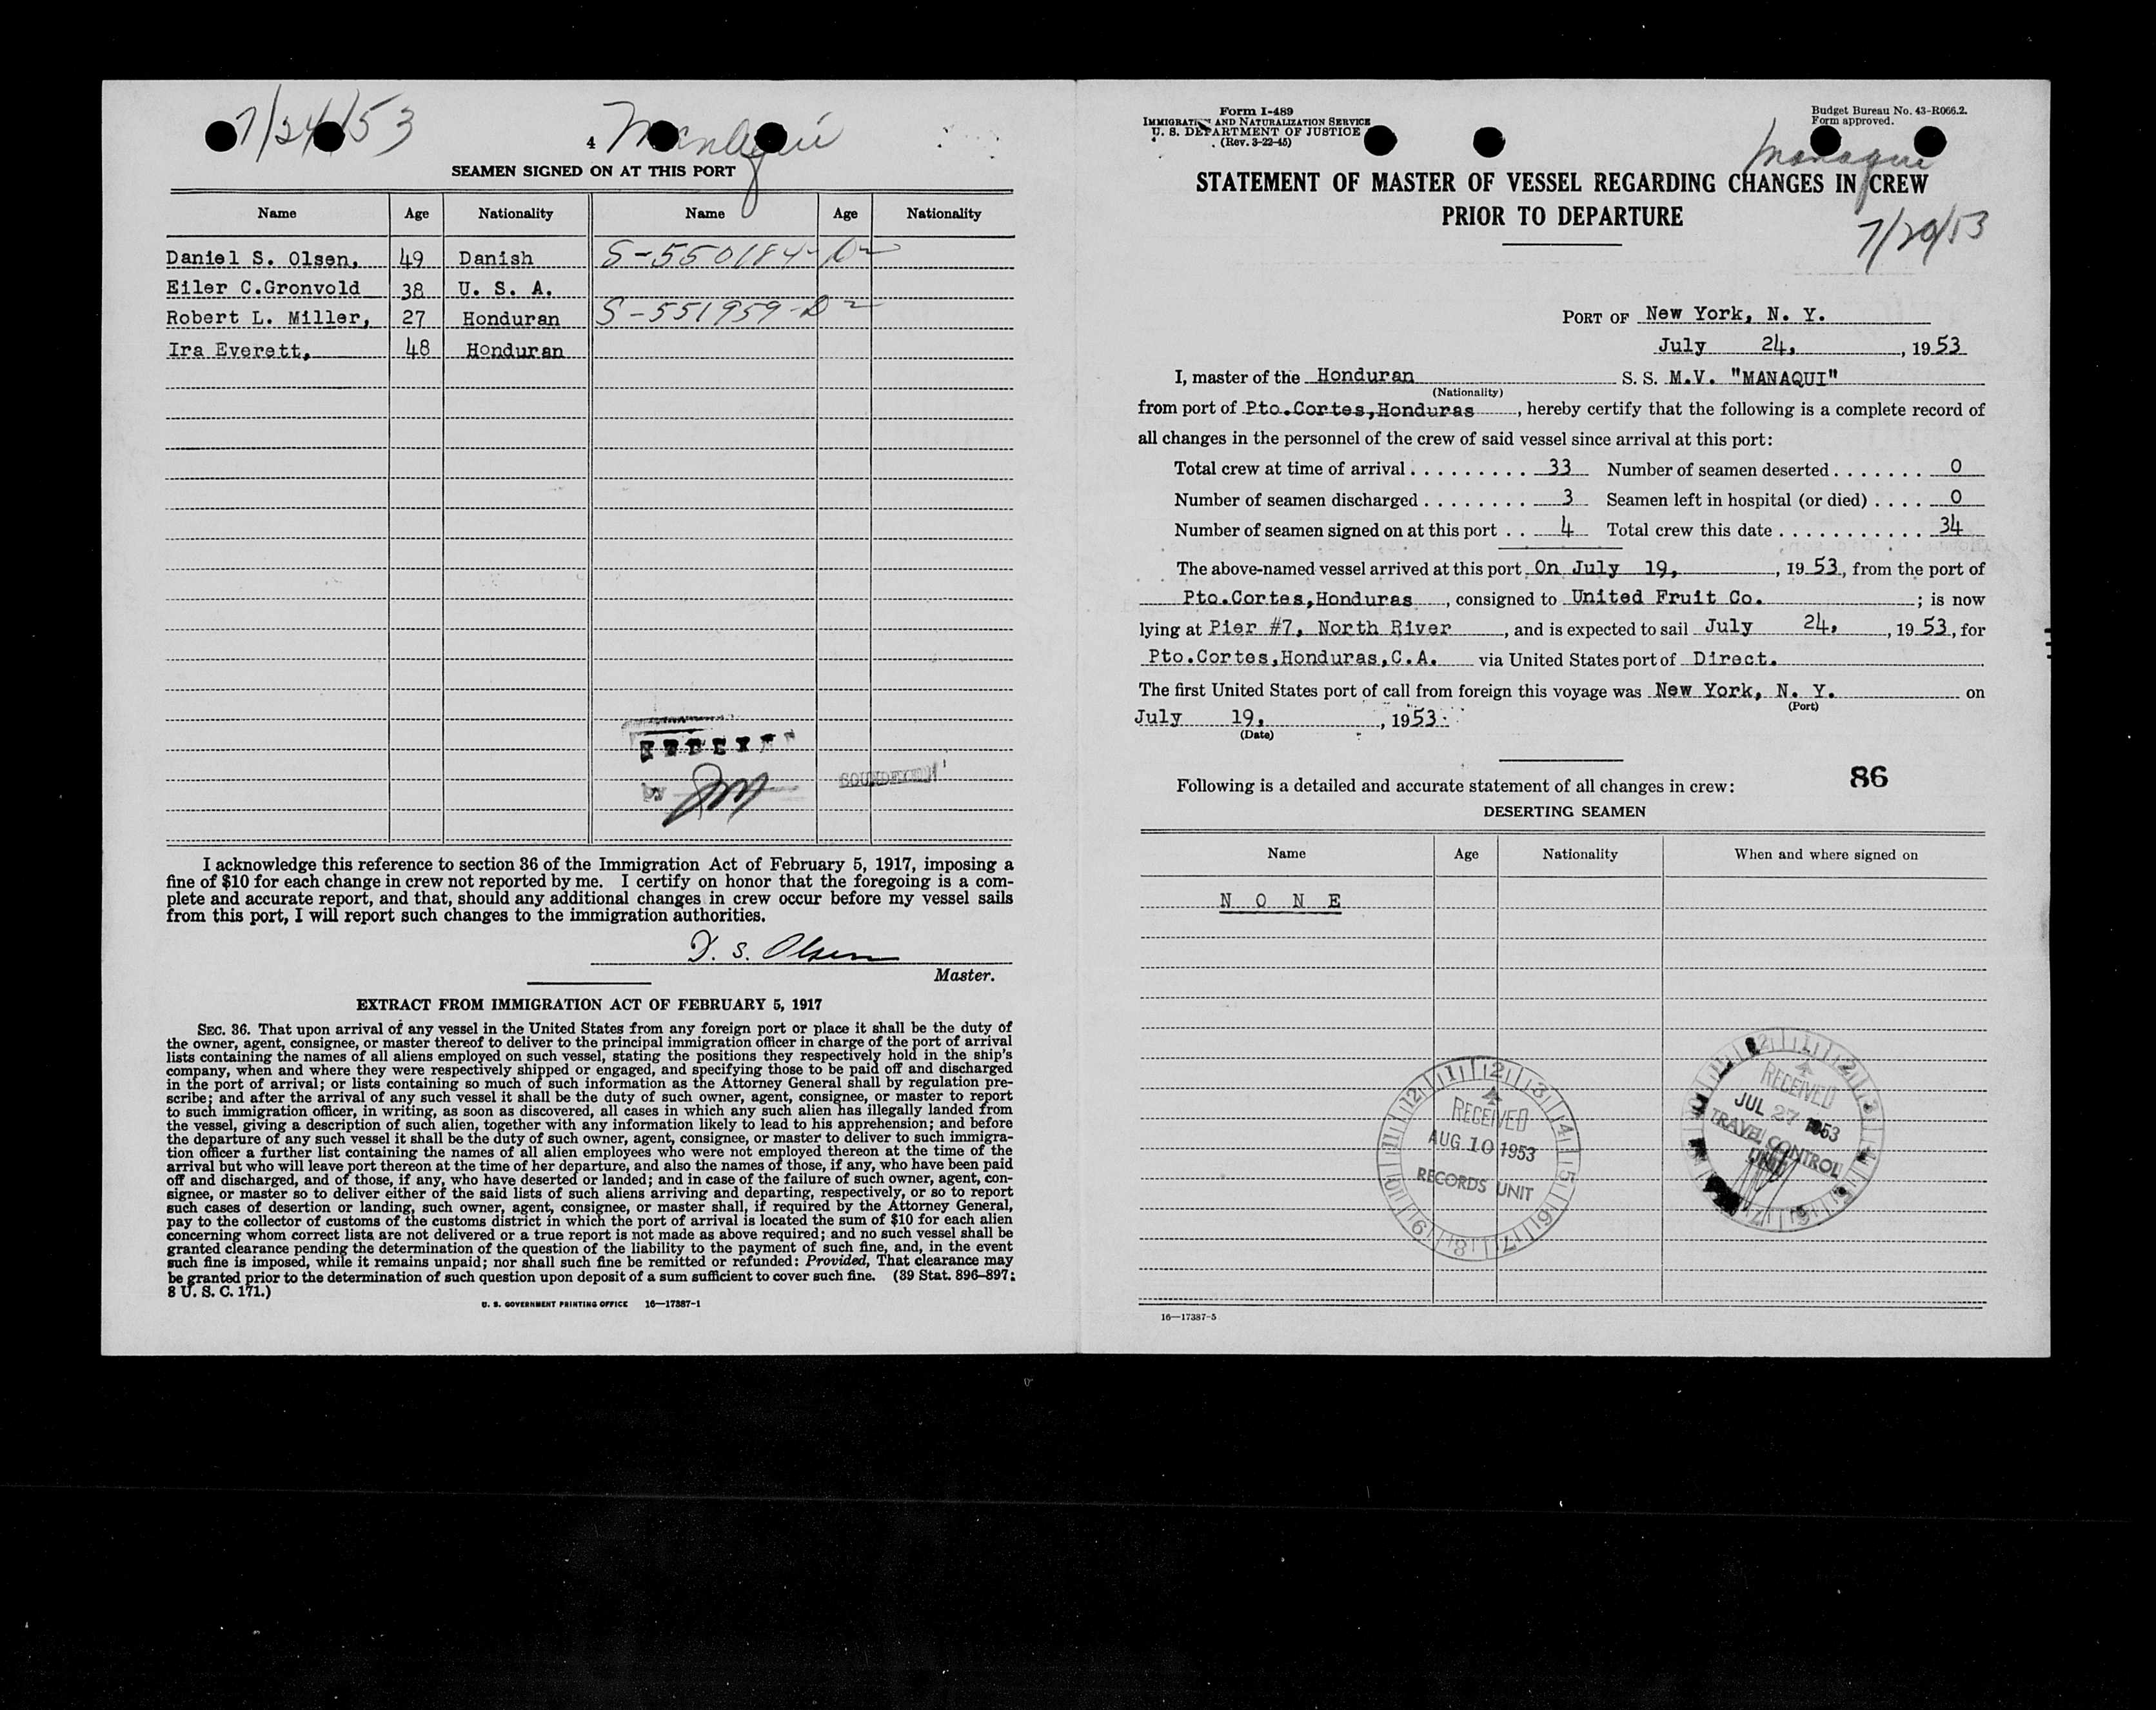 7/24/53
4 Managui
SEAMEN SIGNED ON AT THIS PORT
Name Age Nationality Name Age Nationality
Daniel S. Olsen, 49 Danish S-550184-D2
Eiler C.Gronvold 38 U. S. A.
Robert L. Miller, 27 Honduran S-551959-D2
Ira Everett, 48 Honduran
by
I acknowledge this reference to section 36 of the Immigration Act of February 5, 1917, imposing a
fine of $10 for each change in crew not reported by me. I certify on honor that the foregoing is a com-
plete and accurate report, and that, should any additional changes in crew occur before my vessel sails
from this port, I will report such changes to the immigration authorities.
D. S. Olsen
Master.
EXTRACT FROM IMMIGRATION ACT OF FEBRUARY 5, 1917
SEC. 36. That upon arrival of any vessel in the United States from any foreign port or place it shall be the duty of
the owner, agent, consignee, or master thereof to deliver to the principal immigration officer in charge of the port of arrival
lists containing the names of all aliens employed on such vessel, stating the positions they respectively hold in the ship's
company, when and where they were respectively shipped or engaged, and specifying those to be paid off and discharged
in the port of arrival; or lists containing so much of such information as the Attorney General shall by regulation pre-
scribe; and after the arrival of any such vessel it shall be the duty of such owner, agent, consignee, or master to report
to such immigration officer, in writing, as soon as discovered, all cases in which any such alien has illegally landed from
the vessel, giving a description of such alien, together with any information likely to lead to his apprehension; and before
the departure of any such vessel it shall be the duty of such owner, agent, consignee, or master to deliver to such immigra-
tion officer a further list containing the names of all alien employees who were not employed thereon at the time of the
arrival but who will leave port thereon at the time of her departure, and also the names of those, if any, who have been paid
off and discharged, and of those, if any, who have deserted or landed; and in case of the failure of such owner, agent, con-
signee, or master so to deliver either of the said lists of such aliens arriving and departing, respectively, or so to report
such cases of desertion or landing, such owner, agent, consignee, or master shall, if required by the Attorney General,
pay to the collector of customs of the customs district in which the port of arrival is located the sum of $10 for each alien
concerning whom correct lists are not delivered or a true report is not made as above required; and no such vessel shall be
granted clearance pending the determination of the question of the liability to the payment of such fine, and, in the event
such fine is imposed, while it remains unpaid; nor shall such fine be remitted or refunded: Provided, That clearance may
be granted prior to the determination of such question upon deposit of a sum sufficient to cover such fine. (39 Stat. 896-897;
8 U. S. C. 171.)
U. S. GOVERNMENT PRINTING OFFICE 16—17387-1
Form I-489
IMMIGRATION AND NATURALIZATION SERVICE
U. S. DEPARTMENT OF JUSTICE
(Rev. 3-22-45)
Budget Bureau No. 43-R066.2.
Form approved.
Managui
STATEMENT OF MASTER OF VESSEL REGARDING CHANGES IN CREW
PRIOR TO DEPARTURE
7/20/53
PORT OF New York, N. Y.
July 24, , 1953
I, master of the Honduran S. S. M.V. "MANAQUI"
(Nationality)
from port of Pto.Cortes,Honduras , hereby certify that the following is a complete record of
all changes in the personnel of the crew of said vessel since arrival at this port:
Total crew at time of arrival . . . . . . . . . 33 Number of seamen deserted . . . . . . . 0
Number of seamen discharged . . . . . . . . 3 Seamen left in hospital (or died) . . . . 0
Number of seamen signed on at this port . . 4 Total crew this date . . . . . . . . . . . 34
The above-named vessel arrived at this port On July 19, , 1953, from the port of
Pto.Cortes,Honduras , consigned to United Fruit Co. ; is now
lying at Pier #7, North River , and is expected to sail July 24, , 1953, for
Pto.Cortes,Honduras,C.A. via United States port of Direct.
The first United States port of call from foreign this voyage was New York, N. Y. on
(Port)
July 19, , 1953.
(Date)
86
Following is a detailed and accurate statement of all changes in crew:
DESERTING SEAMEN
Name Age Nationality When and where signed on
N O N E
RECEIVED
AUG 10 1953
RECORDS UNIT
RECEIVED
JUL 27 1953
TRAVEL CONTROL
UNIT
16—17387-5